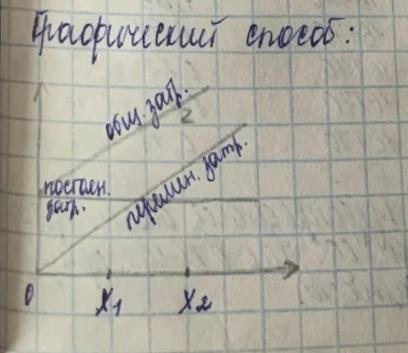 Графический способ:
общ. затр.
2
постоян.
затр.
перемен. затр.
0
X₁
X₂